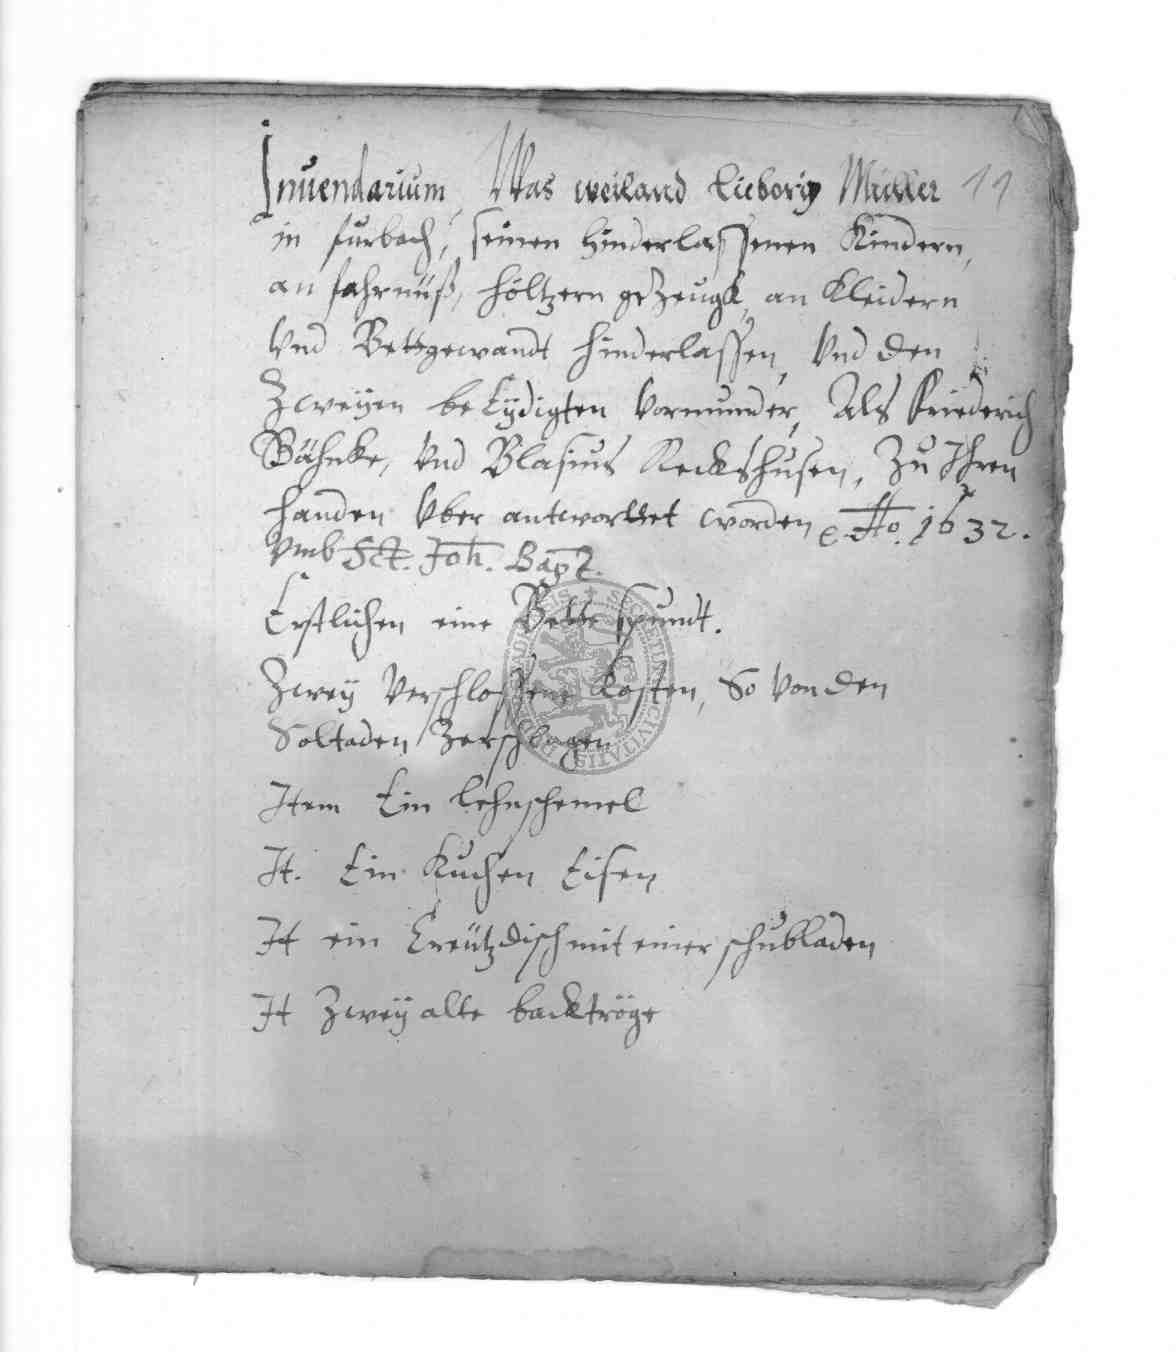 Inuendarium, Was weiland Lieborig Müller 11
in furbach, seinen hinderlassenen Kindern,
an fahrnüß, höltzern gezeugk, an Kleidern
Vnd Bettgewandt hinderlassen, Vnd den
Zweyen beEydigten Vormunder, Als Friederich
Bähnke, Vnd Blasius Reckshusen, Zu Ihren
handen Vber antworttet worden Ao. 1632.
Vmb Sct. Joh. Bapt.
Erstlichen eine Bette spundt.
Zwey Verschlossene Kasten, So Von den
Soltaden Zerschlagen
Item Ein lehnschemel
It. Ein Kuchen Eisen
It ein Creützdisch mit einer schubladen
It Zweÿ alte backtröge
SECRETUM CIVITATIS